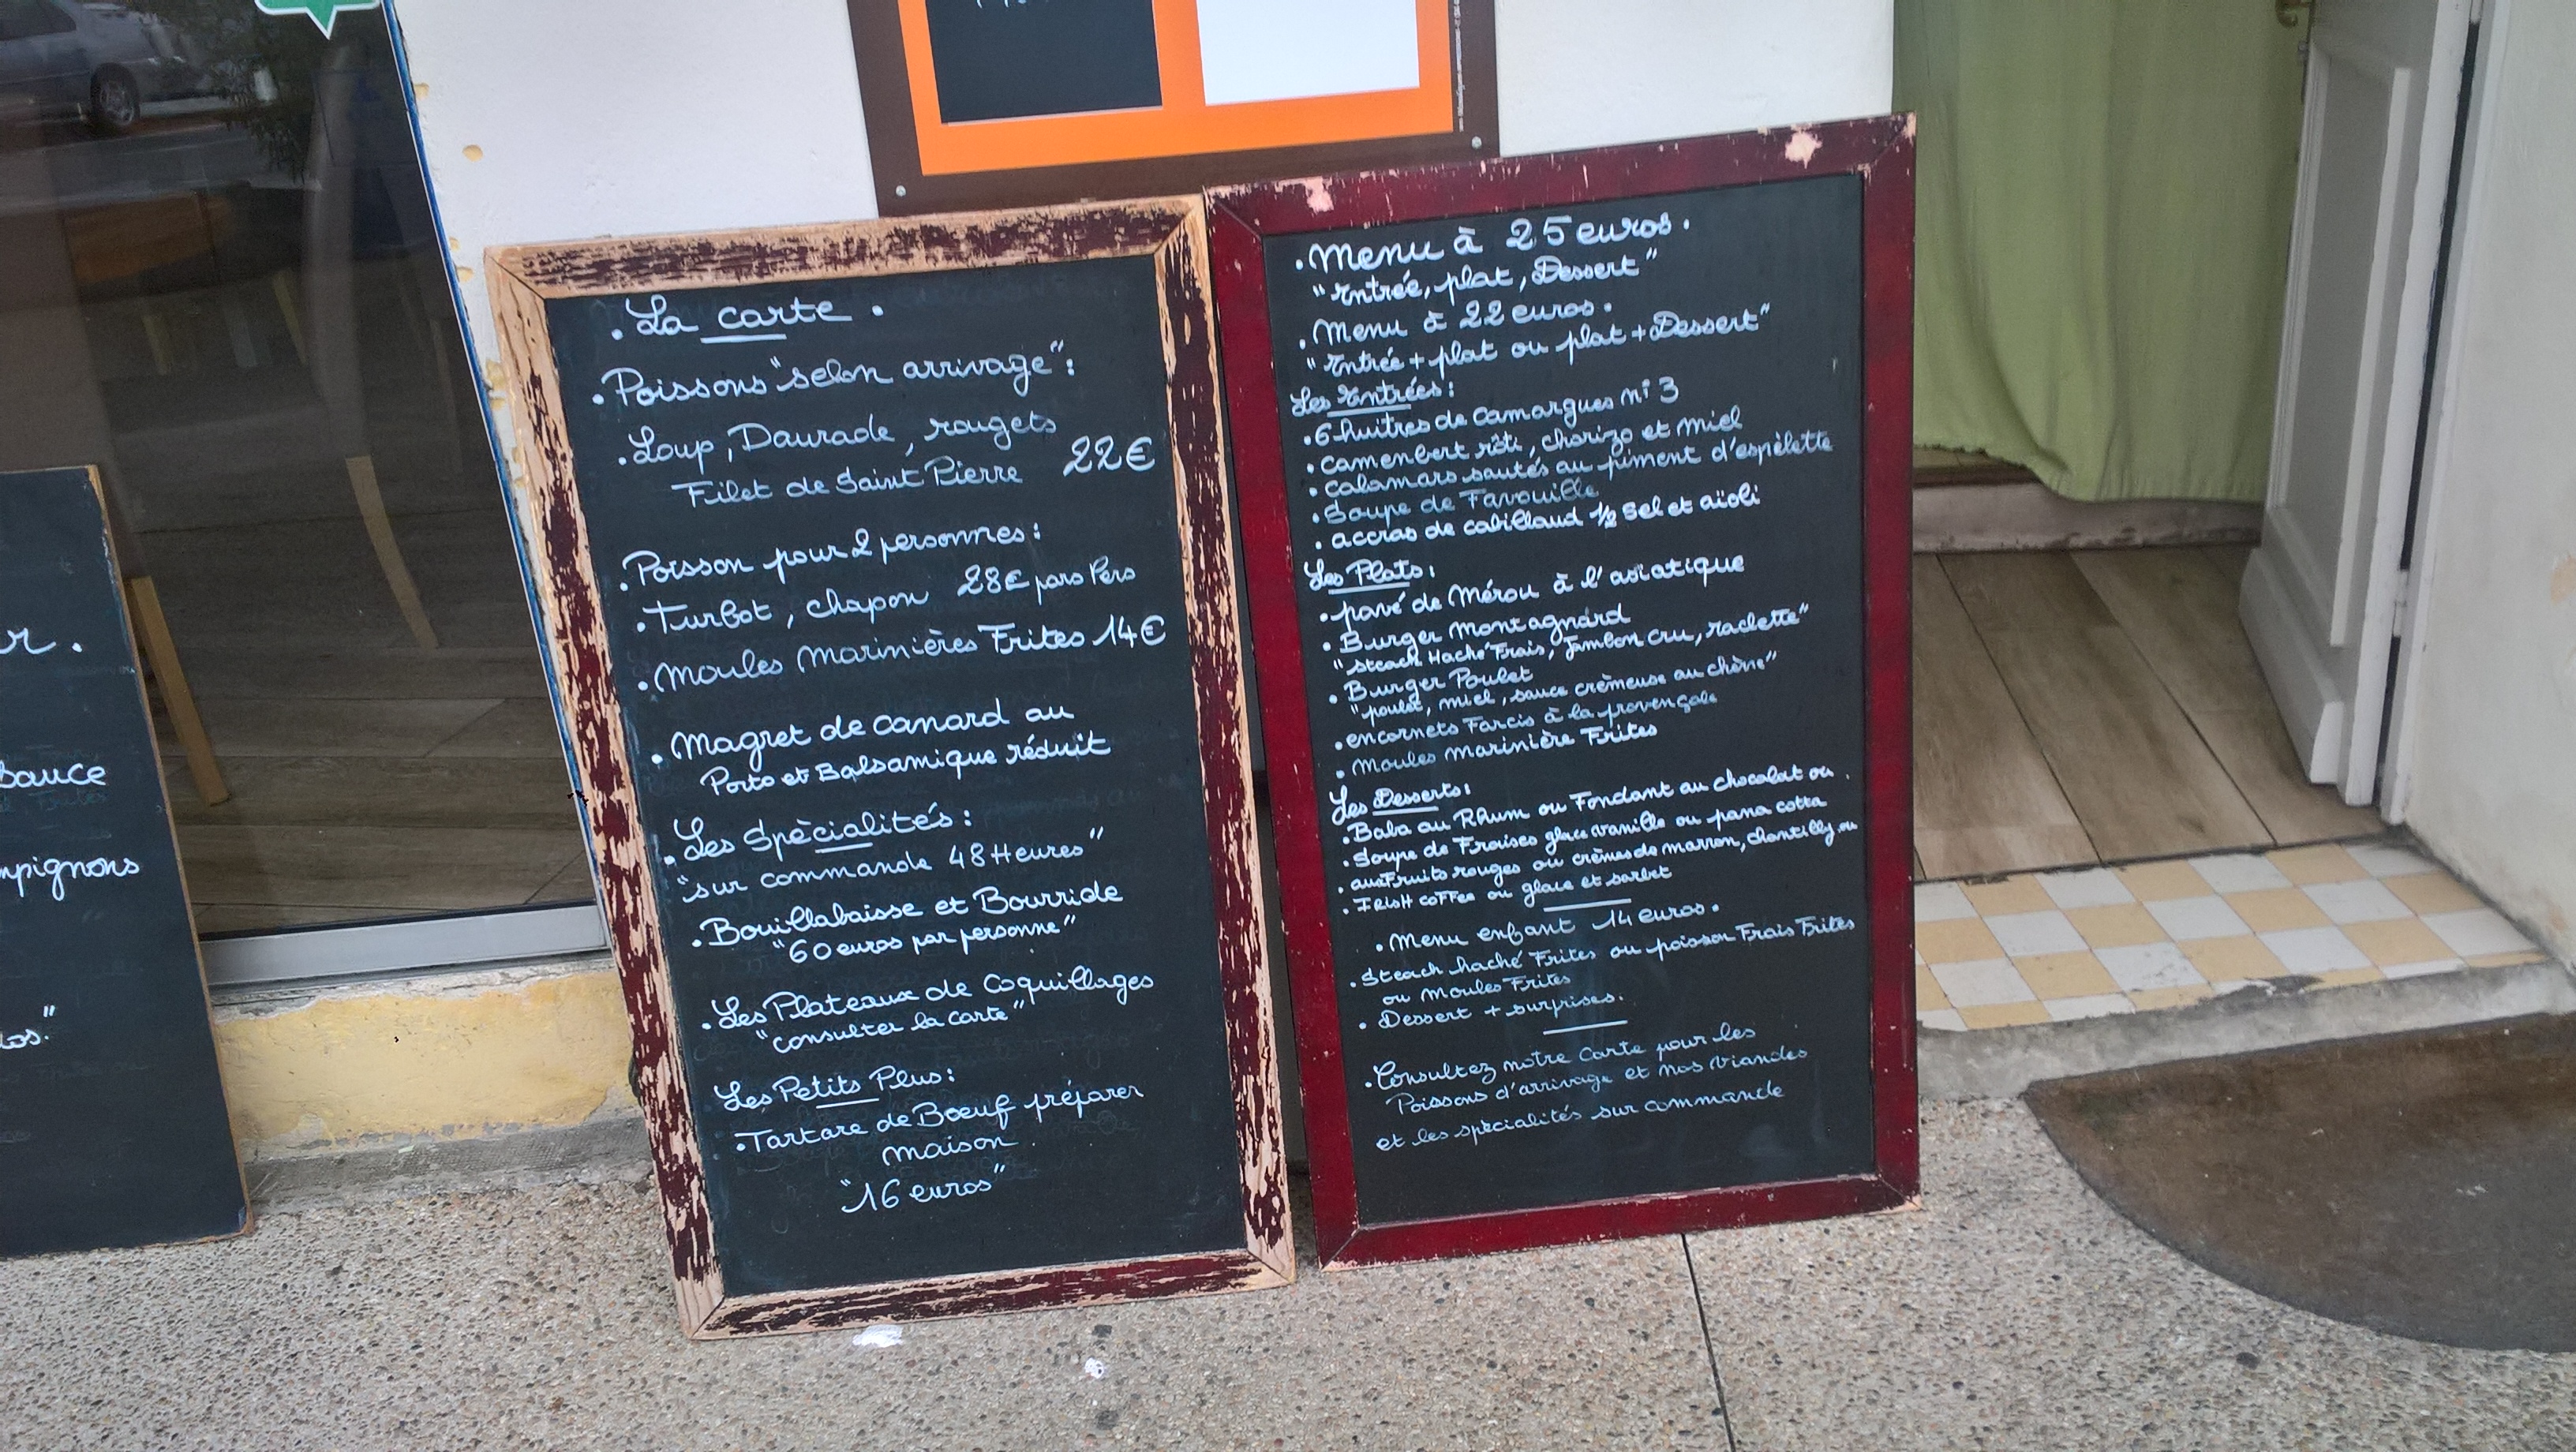 r.
sauce
mpignons
tos."
. La carte .
. Poissons "selon arrivage" :
. Loup, Daurade, rougets
Filet de Saint Pierre 22€
. Poisson pour 2 personnes :
. Turbot, chapon 28€ pars Pers
. Moules Marinières Frites 14€
. Magret de canard au
Porto et Balsamique réduit
. Les Spècialités :
"sur commande 48 Heures"
. Bouillabaisse et Bourride
"60 euros par personne"
. Les Plateaux de Coquillages
"consulter la carte"
Les Petits Plus :
. Tartare de Boeuf préparer
maison
"16 euros"
. Menu à 25 euros.
"Entrée, plat, Dessert"
. Menu à 22 euros.
"Entrée + plat ou plat + Dessert"
Les Entrées :
. 6 huitres de Camargues n° 3
. camenbert rôti, chorizo et miel
. calamars sautés au piment d'espèlette
. Soupe de Favouille
. accras de cabillaud 1/2 sel et aïoli
Les Plats :
. pavé de Mérou à l'asiatique
. Burger Montagnard
"steach Haché Frais, Jambon cru, raclette"
. Burger Poulet
"poulet, miel, sauce crèmeuse au chèvre"
. encornets Farcis à la provençale
. Moules marinière Frites
Les Desserts :
. Baba au Rhum ou Fondant au chocolat ou .
. Soupe de Fraises glace vanille ou pana cotta
. aux Fruits rouges ou crèmes de marron, chantilly ou
. IRISH COFFee ou glace et sorbet
. Menu enfant 14 euros.
. Steach haché Frites ou poisson Frais Frites
ou Moules Frites
. Dessert + surprises.
. Consultez notre Carte pour les
Poissons d'arrivage et nos Viandes
et les spècialités sur commande